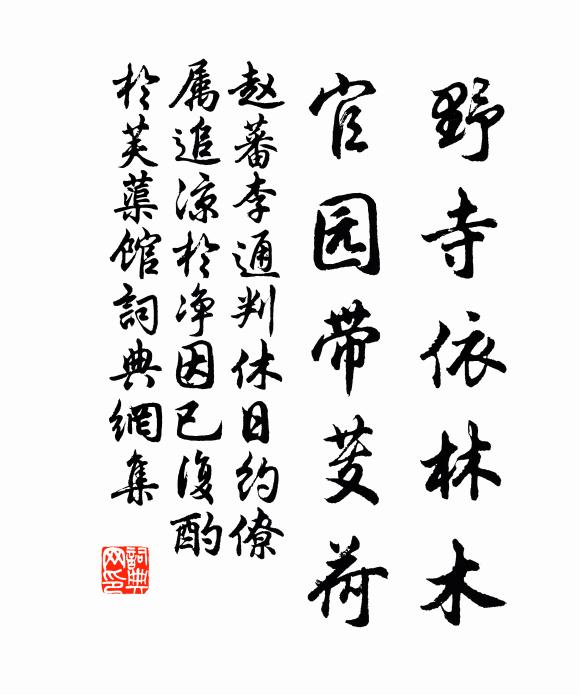 野寺依林木
官园带芰荷
赵蕃李通判休日约僚
属追凉於净因已復酌
於芙蕖馆詞典網集
詞典网印